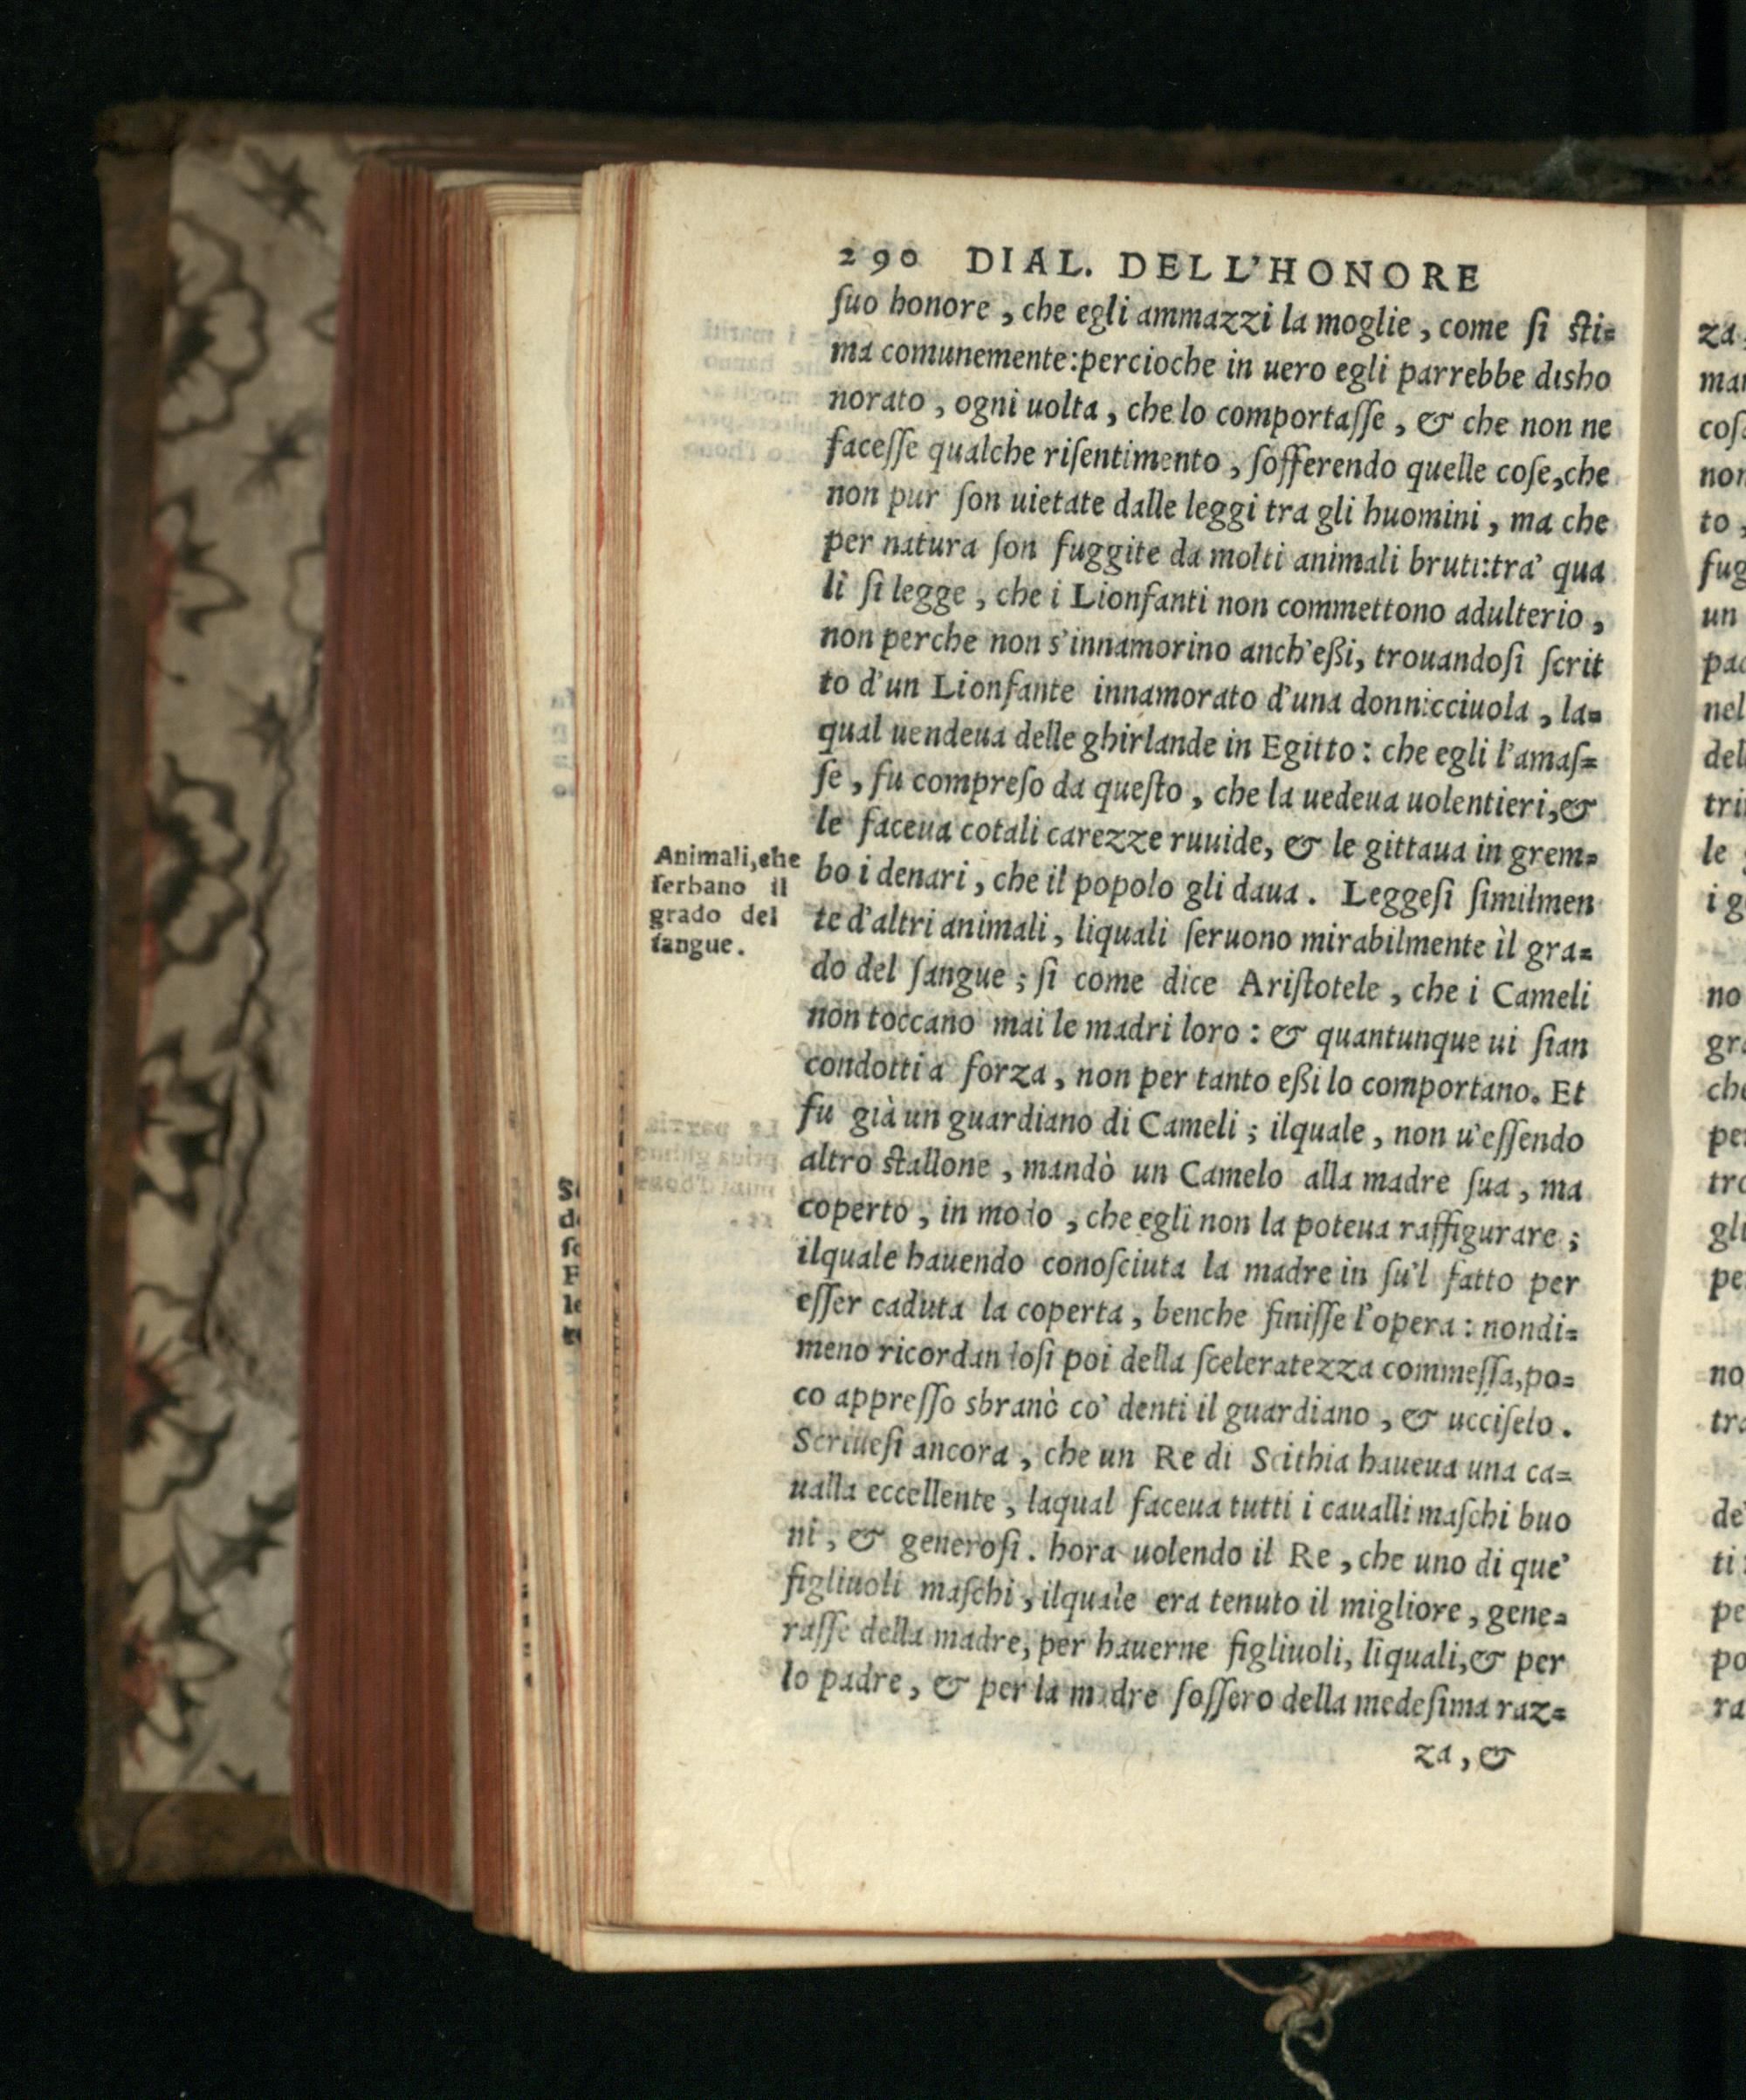 290 DIAL. DELL'HONORE
ſuo honore, che egli ammazzi la moglie, come ſi ſti=
ma comunemente: percioche in uero egli parrebbe disho
norato, ogni uolta, che lo comportaſſe, & che non ne
faceſſe qualche riſentimento, ſofferendo quelle coſe, che
non pur ſon uietate dalle leggi tra gli huomini, ma che
per natura ſon fuggite da molti animali bruti: tra' qua
li ſi legge, che i Lionfanti non commettono adulterio,
non perche non s'innamorino anch'eßi, trouandoſi ſcrit
to d'un Lionfante innamorato d'una donnicciuola, la=
qual uendeua delle ghirlande in Egitto: che egli l'amaſ=
ſe, fu compreſo da queſto, che la uedeua uolentieri, &
le faceua cotali carezze ruuide, & le gittaua in grem=
bo i denari, che il popolo gli daua. Leggeſi ſimilmen
te d'altri animali, liquali ſeruono mirabilmente il gra=
do del ſangue; ſi come dice Ariſtotele, che i Cameli
non toccano mai le madri loro: & quantunque ui ſian
condotti a forza, non per tanto eßi lo comportano. Et
fu già un guardiano di Cameli; ilquale, non u'eſſendo
altro ſtallone, mandò un Camelo alla madre ſua, ma
coperto, in modo, che egli non la poteua raffigurare;
ilquale hauendo conoſciuta la madre in ſu'l fatto per
eſſer caduta la coperta, benche finiſſe l'opera: nondi=
meno ricordandoſi poi della ſceleratezza commeſſa, po=
co appreſſo sbranò co' denti il guardiano, & ucciſelo.
Scriueſi ancora, che un Re di Scithia haueua una ca=
ualla eccellente, laqual faceua tutti i caualli maſchi buo
ni, & generoſi. hora uolendo il Re, che uno di que'
figliuoli maſchi, ilquale era tenuto il migliore, gene=
raſſe della madre, per hauerne figliuoli, liquali, & per
lo padre, & per la madre foſſero della medeſima raz=
za, &
Animali, che
ſerbano il
grado del
ſangue.